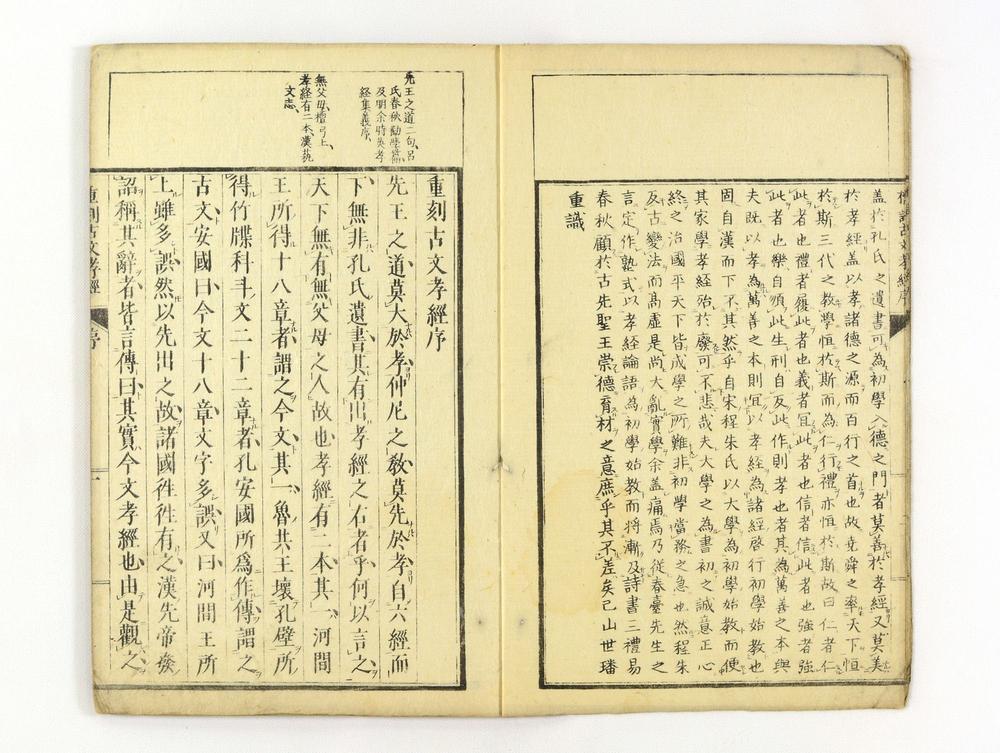 蓋於孔氏之遺書可為初學入德之門者莫善於孝經又莫美
於孝經蓋以孝諸德之源而百行之首也故堯舜之率天下恒
於斯三代之教學恒於斯而為仁行禮亦恒於斯故曰仁者仁
此者也禮者履此者也義者宜此者也信者信此者也強者強
此者也樂自順此生刑自反此作則孝也者其為萬善之本與
夫既以孝為萬善之本則宜以孝經為諸經啓行初學始教也
固自漢而下不其然乎自宋程朱氏以大學為初學始教而便
其家學孝經殆於廢可不悲哉夫大學之為書初之誠意正心
終之治國平天下皆成學之所難非初學當務之急也然程朱
反古變法而高虛是尚大亂實學余蓋痛焉乃從春臺先生之
言定作塾式以孝經論語為初學始教而將漸及詩書三禮易
春秋顧於古先聖王崇德育材之意庶乎其不差矣已山世璠
重識
先王之道二句呂
氏春秋
及明余時英孝
經集義序
無父母檀弓上
孝経有二本漢芸
文志
重刻古文孝經序
先王之道莫大於孝仲尼之教莫先於孝自六經而
下無非孔氏遺書其有出孝經之右者乎何以言之
天下無有無父母之人故也孝經有二本其一河間
王所得十八章者謂之今文其一魯共王壞孔壁所
得竹牒科斗文二十二章者孔安國所爲作傳謂之
古文安國曰今文十八章文字多誤又曰河間王所
上雖多誤然以先出之故諸國徃徃有之漢先帝發
詔稱其辭者皆言傳曰其實今文孝經也由是觀之
重刻古文孝經 序 一